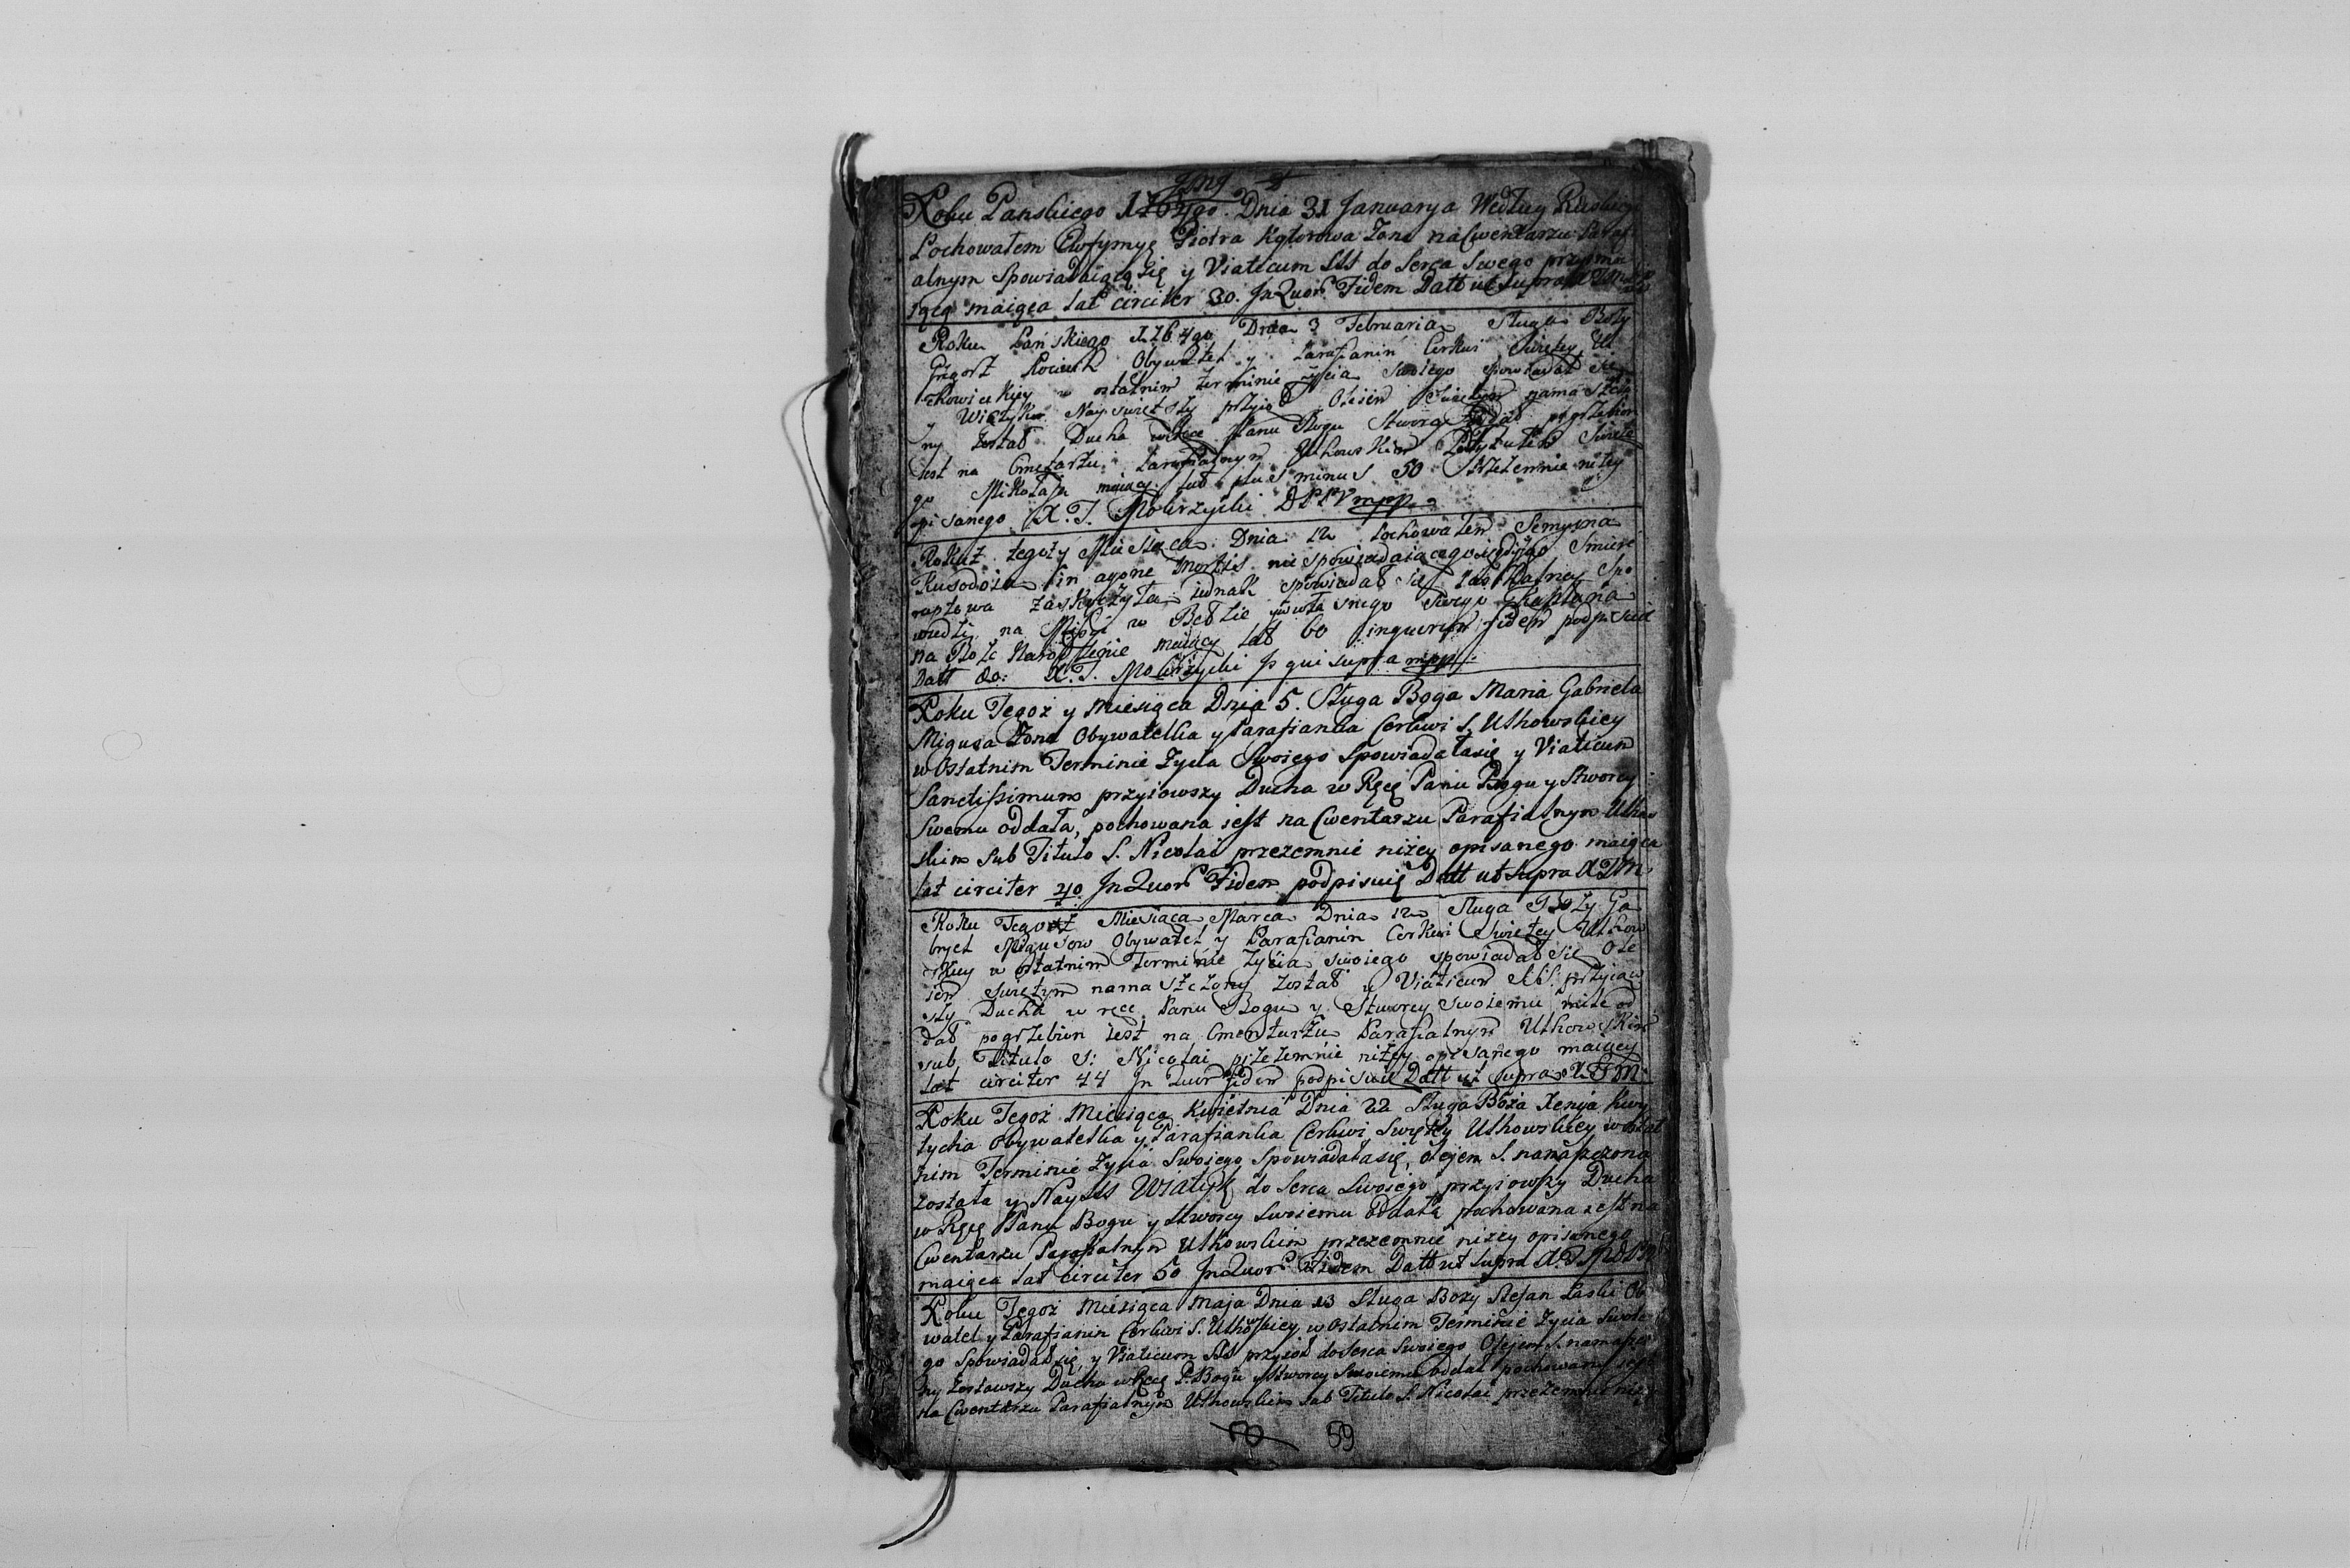 Roku Panskiego 1764go. Dnia 31 Januarya Według Ruskiego
Pochowałem Piotra żone na Cwentarzu Parafi
alnym Spowiadaiącą się y Viaticum SSS do Serca Swego przyimu
iącą maiąca lat circiter 30. In Quor Fidem Datt ut Supra
Roku Pańskiego 1764go Dnia 3 Februaria Sługa Boży
Grzegorz Obywatel y Parafianin Cerkwi Swiętey Ut
chowskiey w ostatnim terminie życia swoiego spowiadał się
y Wiatyk Nayswiętszy przyioł Oleiem Swiętym namaszczo
ny został Ducha w Ręce Panu Bogu Stworcy oddał pogrzebion
iest na Cmętarzu Parafialnym Uthowskim pod Tytułem Swięte
go Mikołaja maiący lat plus minus 50 Przezemnie niżey
pisanego X. T. Mokrzycki DPPV mpp
Rokuż tegoży Miesięca Dnia 12 Pochowałem Semyona
in agone mortis nie spowiadaiącego się gdyż go smierć
raptowa zaskoczyła iednak spowiadał się Spo
wiedzi na w swego Kapłana
na Boże Narodzenie maiący lat 60 in quorum fidem podpisuie
Datt do: X. T. Mokrzycki P qui supra mpp
Roku Tegoż y Miesiąca Dnia 5. Sługa Boga Maria Gabriela
Migusa Żona Obywatelka y Parafianka Cerkwi S. Uthowskiey
w Ostatnim Terminie Życia Swoiego Spowiadała się y Viaticum
Sanctissimum przyiowszy Ducha w Ręcę Panu Bogu y Stworcy
Swemu oddała, pochowana iest na Cwentarzu Parafialnym Uthow
skim sub Titulo S. Nicolai przezemnie niżey opisanego maiąca
lat circiter 40 In Quor Fidem podpisuię Datt ut Supra XTM
Roku Tegoż Miesiąca Marca Dnia 12 Sługa Boży Ga
bryel Migusow Obywatel y Parafianin Cerkwi Swiętey Uthow
skiey w ostatnim Terminie życia swoiego spowiadał się Ole
iem swiętym namaszczony został y Viaticum SSS: przyiąw
szy Ducha w ręce Panu Bogu y Stworcy swoiemu mile od
dał pogrzebion iest na Cmentarzu Parafialnym Uthowskim
sub Titulo S: Nicolai przezemnie niżey opisanego maiący
lat circiter 44 In Quor fidem podpisuie Datt ut supra X. T M
Roku Tegoż Miesiąca Kwietnia Dnia 22 Sługa Boża Xenija Kwy
tycha Obywatelka y Parafianka Cerkwi Swiętey Uthowskiey w ostat
nim Terminie Życia Swojego Spowiadała się, Olejem S. namaszczona
została y Nay SSS Wiatyk do Serca Swojego przyiowszy Ducha
w Ręcę Panu Bogu y Stworcy Swoiemu oddała pochowana iest na
Cwentarzu Parafialnym Uthowskim przezemnie niżey opisanego
maiąca lat circiter 50 In Quor Fidem Datt ut supra
Roku Tegoż Miesiąca Maja Dnia 23 Sługa Boży Stefan Laski Oby
watel y Parafianin Cerkwi S. Uthowskiey w Ostatnim Terminie Życia Swoie
go Spowiadał się, y Viaticum SSS przyioł do Serca Swoiego Olejem S. namaszczo
ny zostawszy Ducha w Ręcę P. Bogu y Stworcy Swoiemu oddał pochowany iest
na Cwentarzu Parafialnym Uthowskim sub Titulo S. Nicolai przezemnie niż
59